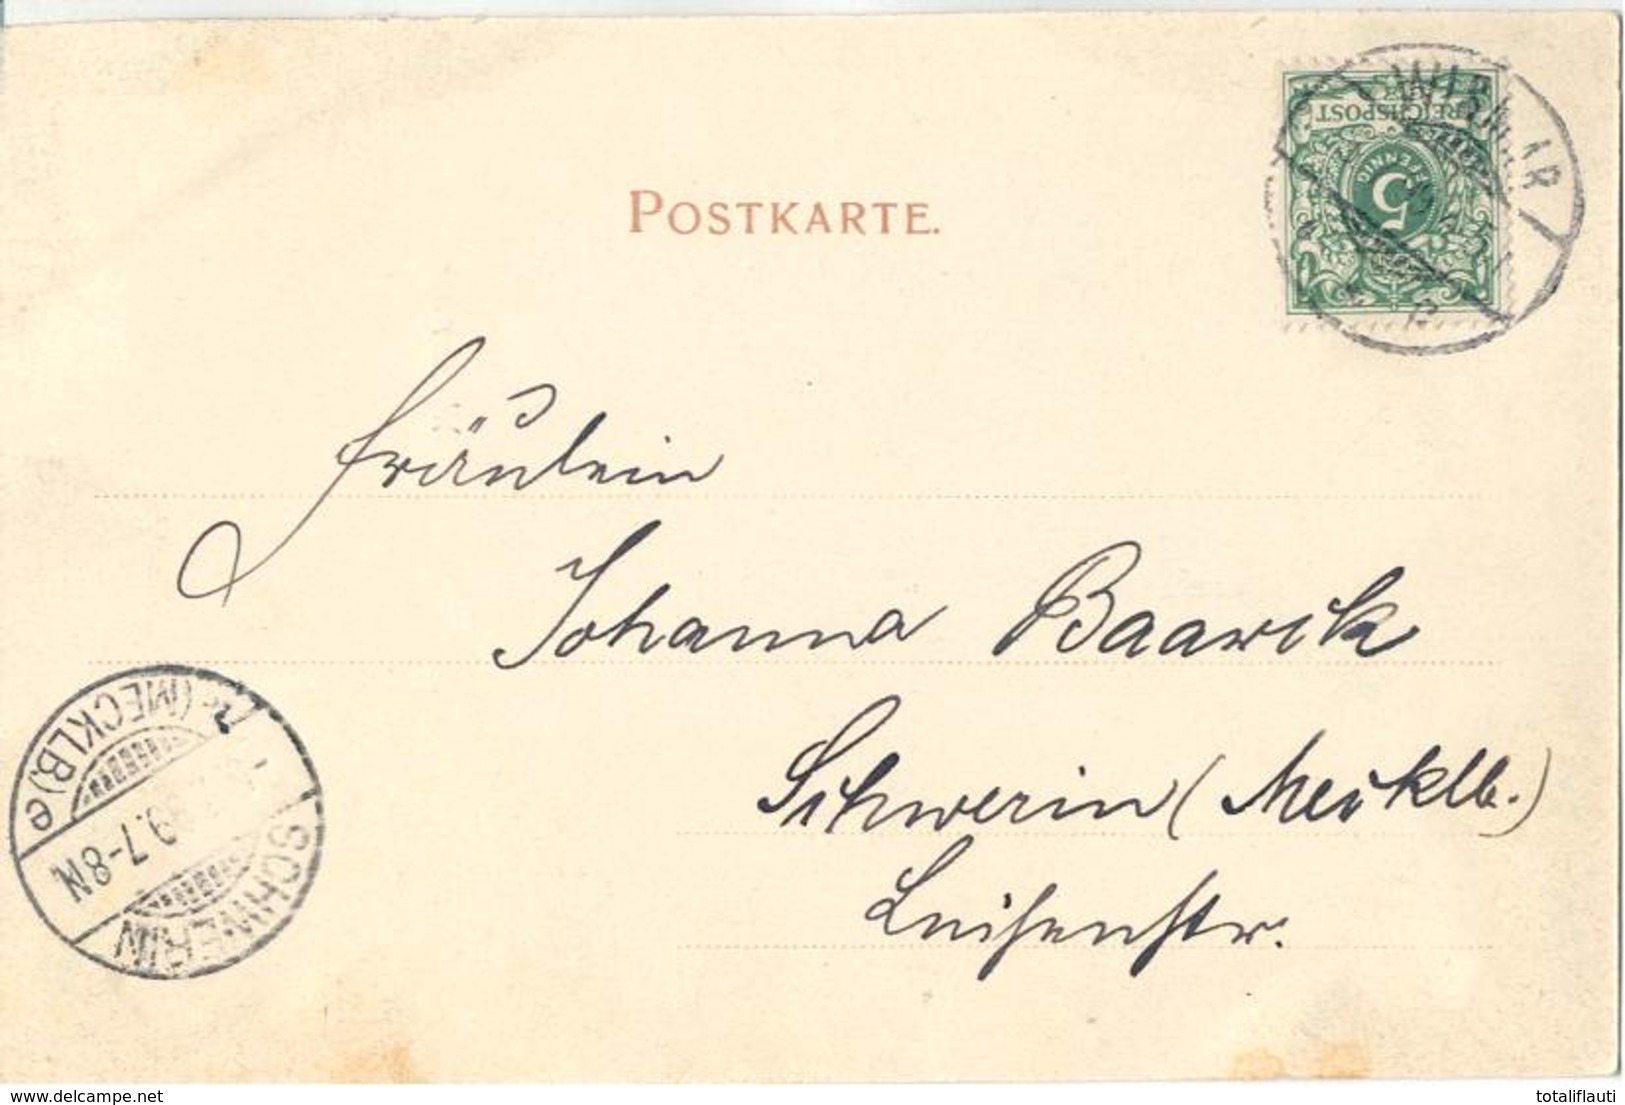 POSTKARTE.
REICHSPOST
5
PFENNIG
WISMAR
Fräulein
Johanna Baarck
Schwerin (Mecklb.)
Luisenstr.
SCHWERIN
(MECKLB.) e
7-8N.
delcampe.net
totaliflauti